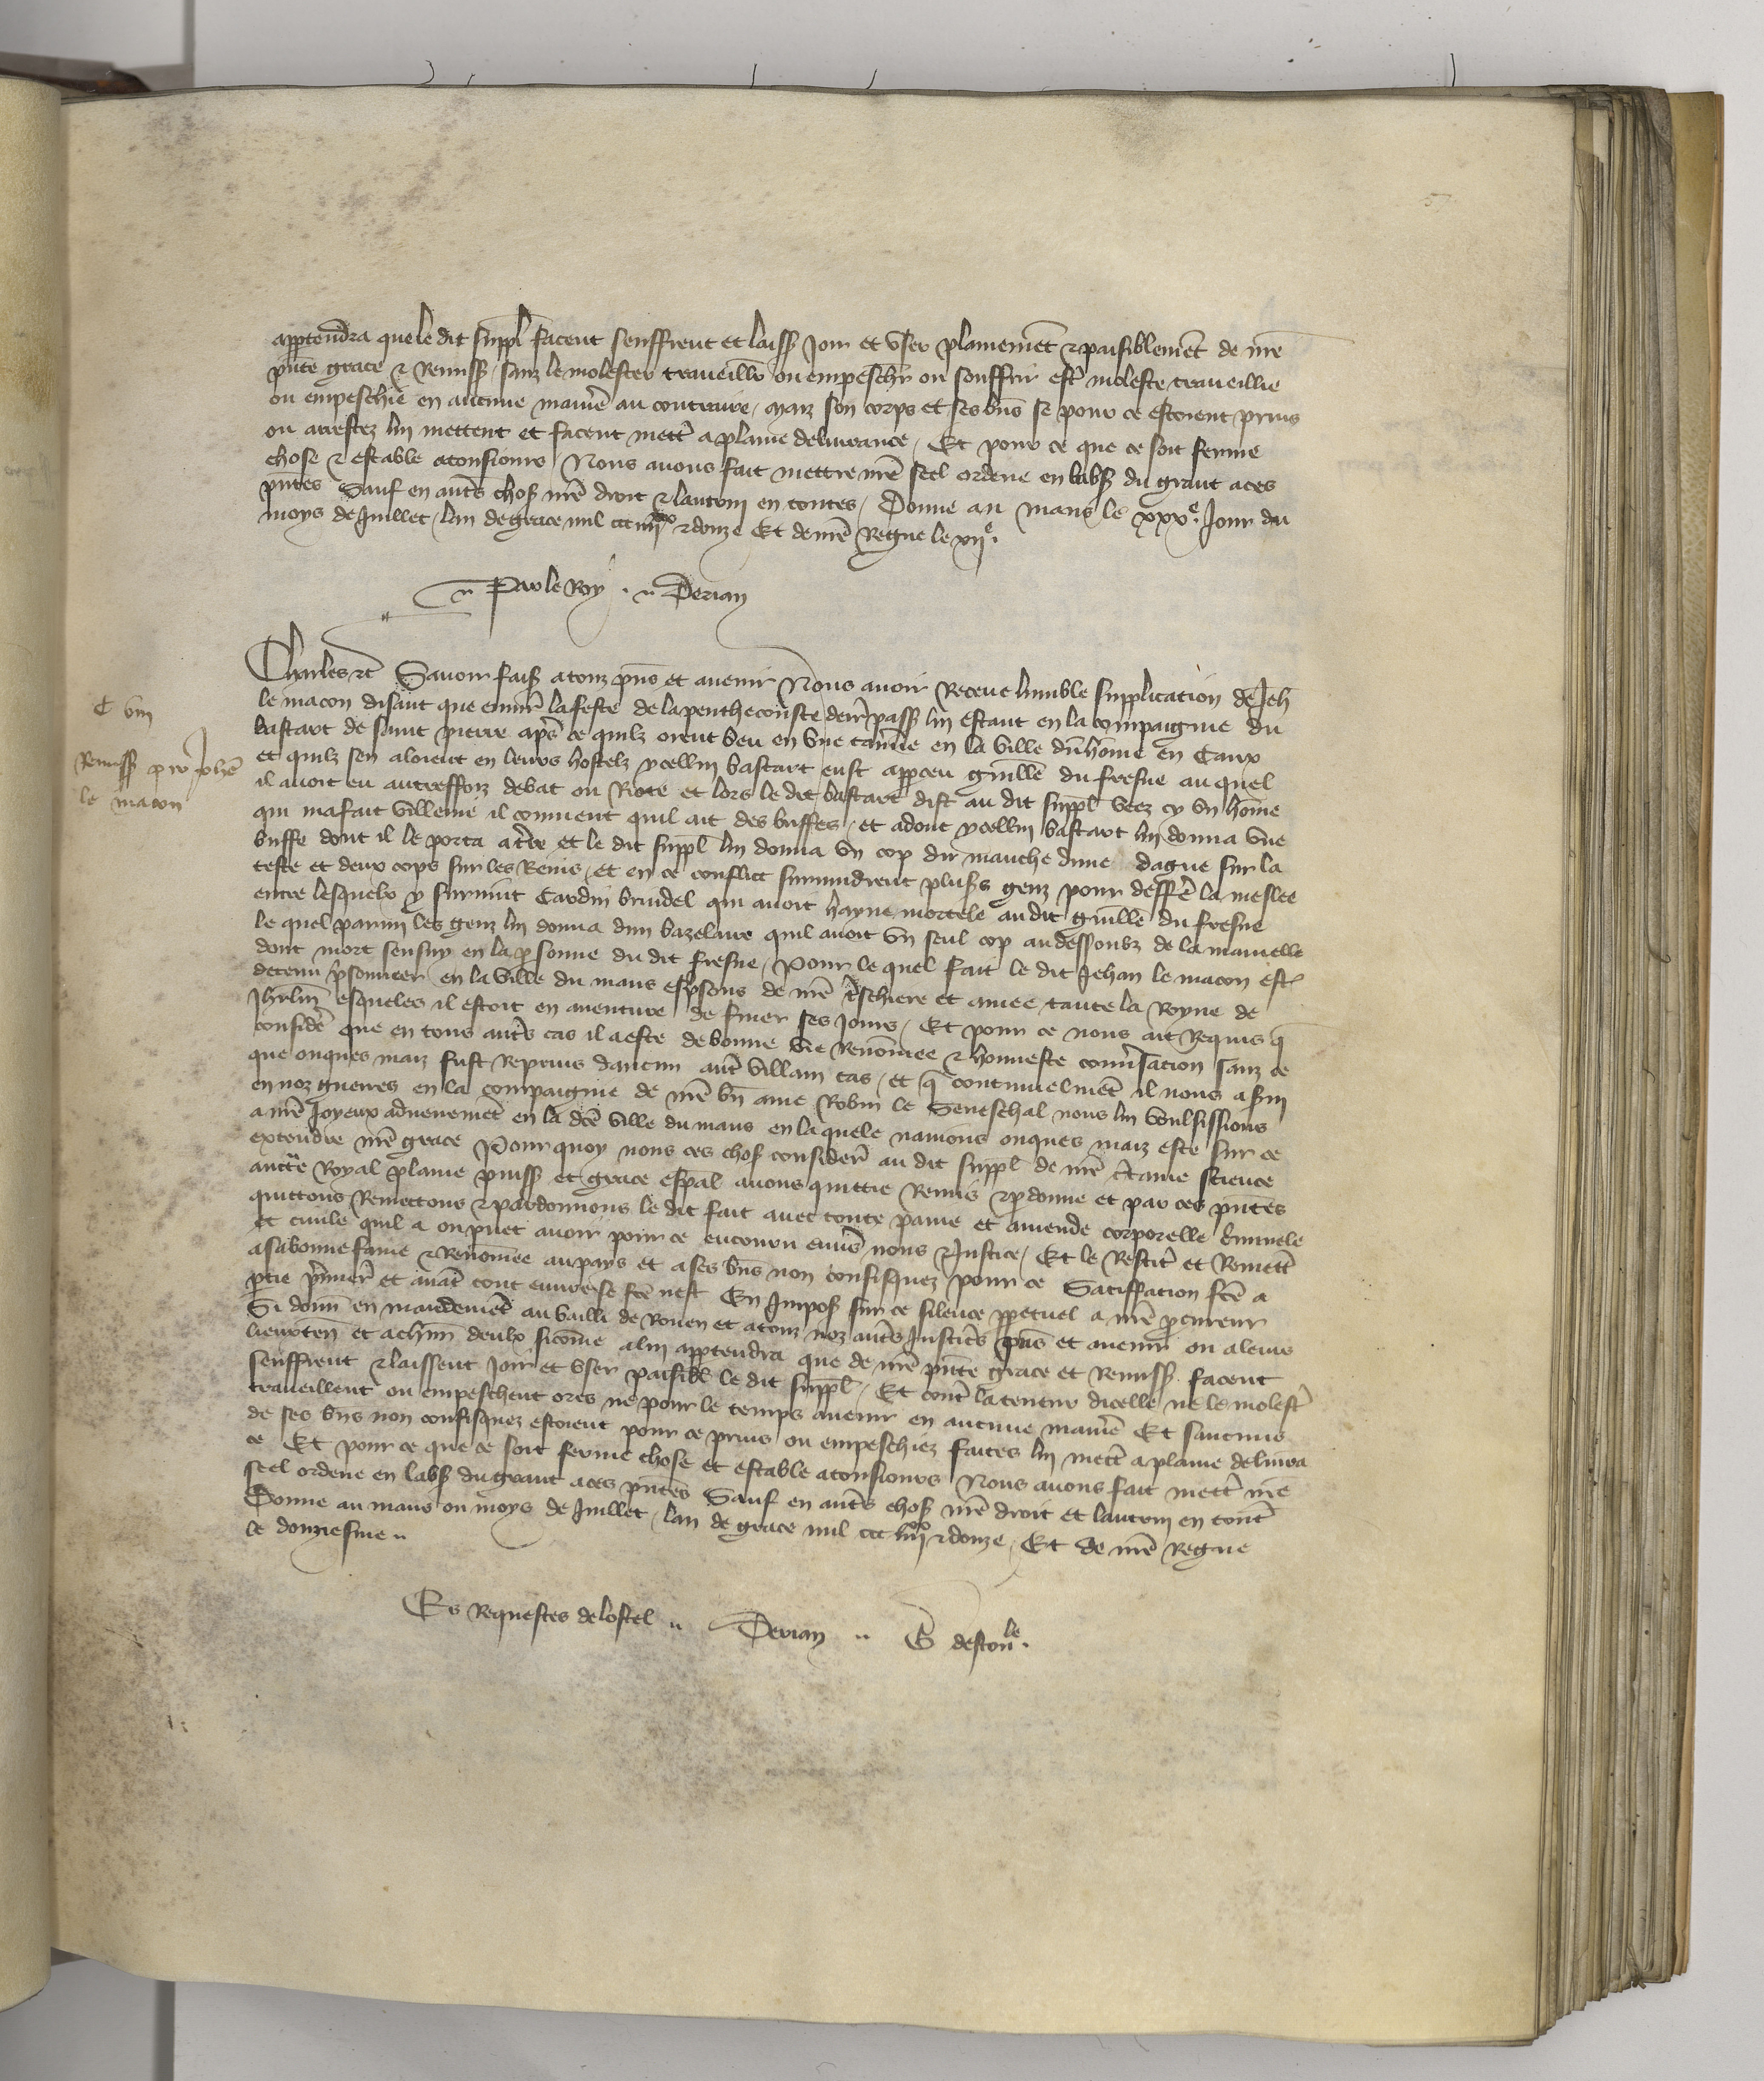 appartendra que le dit suppl facent seuffrent et laiss joir et user plainemēt & paisiblemēt de nre
pnte grace & Remiss, sanz le molester traveillr ou empeschr ou souffrir estr moleste traveillie
ou empeschie en aucune maniē au contraire, maiz son corps et ses biēs se pour ce estoient prins
ou arrestez lui mettent et facent mettr a plaine delivrance, Et pour ce que ce soit ferme
chose & estable a tousjours Nous avons fait mettre nrē seel ordene en labs du grant a ces
pntes Sauf en autrs chos nrē droit & lautrui en toutes, Donne au mans le xxxe. Jour du
moys de Juillet, lan de grace mil ccc iiiixx & douze Et de nrē Regne le xiie.
Par le Roy . Derian
Charles etc Savoir fais a touz pns et avenir Nous avoir Receue lumble supplicacion de Jeh
le macon disant que envir la feste de la penthecouste derr pass lui estant en la compaignie du
bastart de saint pierre aps ce quilz orent beu en une tavne en la ville
et quilz sen aloient en leurs hostelz ycellui bastart eust apperceu guillē du fresne au quel
il avoit eu autreffoiz debat ou Riote et lors le dit bastart dist au dit suppl veez cy un hōme
qui ma fait villenie il convient quil ait des buffes, et adont ycellui bastart lui donna une
buffe dont il le porta a trre et le dit suppl lui donna un cop du manche dune dague sur la
teste et deux cops sur les Reins, et en ce conflict survindrent plusrs genz pour deffrē la meslee
entre lesquelx y survint Cardin bruidel qui avoit hayne mortele au dit guillē du fresne
le quel parmi les genz lui donna dun bazelaire quil avoit un seul cop au dessoubz de la mamelle
dont mort sensuy en la psonne du dit fresne, Pour le quel fait le dit Jehan le macon est
detenu prsonnier en la ville du mans es prsons de nrē trschiere et amee tante la Royne de
Jhrlm esqueles il estoit en aventure de finer ses jours, Et pour ce nous ait Requis q
considrē que en tous autrs cas il a este de bonne vie Renōmee & honneste convrsacion sanz ce
que onques maiz fust Reprins daucun autr villain cas, et q continuelmēt il nous a srvi
en noz guerres en la compaignie de nrē bn ame Robin le Seneschal nous lui voulsissions
a nrē joyeux advenemēt en la dcē ville du mans en la quele navions onques maiz este sur ce
extendre nrē grace Pour quoy nous ces chos considerr au dit suppl de nrē crtaine science
auctte Royal plaine puiss et grace espal avons quittie Remis & pdonne et par ces pntes
quittons Remettons & pardonnons le dit fait avec toute paine et amende corporelle crminele
et civile quil a ou puet avoir pour ce encouru envrs nous & Justice, Et le Restitr et Remettr
a sa bonne fame & Renōmee au pays et a ses biēs non confisquez pour ce Satiffacion fcē a
ptie prmierr et avāt tout euvre se fcē nest En Impos sur ce silence ppetuel a nrē pcureur
Si donn en mandemēt au bailli de Rouen et a touz noz autrs Justicrs pns et avenir ou a leurs
lieuxten et a chun deulx sicōme a lui appartendra que de nrē pnte grace et Remiss facent
seuffrent & laissent joir et user paisibl le dit suppl, Et contr la teneur dicelle ne le molestr
traveillent ou empeschent ores ne pour le temps avenir en aucune maniē Et saucuns
de ses biēs non confisquez estoient pour ce prins ou empeschiez faites lui mettr a plaine delivra
ce Et pour ce que ce soit ferme chose et estable a tousjours Nous avons fait mettr nrē
seel ordene en labs du grant a ces pntes Sauf en autrs chos nrē droit et lautrui en toutr
Donne au mans ou moys de Juillet, lan de grace mil ccc iiiixx & douze, Et de nrē Regne
le douziesme
Es Requestes de lostel Derian G destoule.
C viii
Remiss pro Johē
le macon